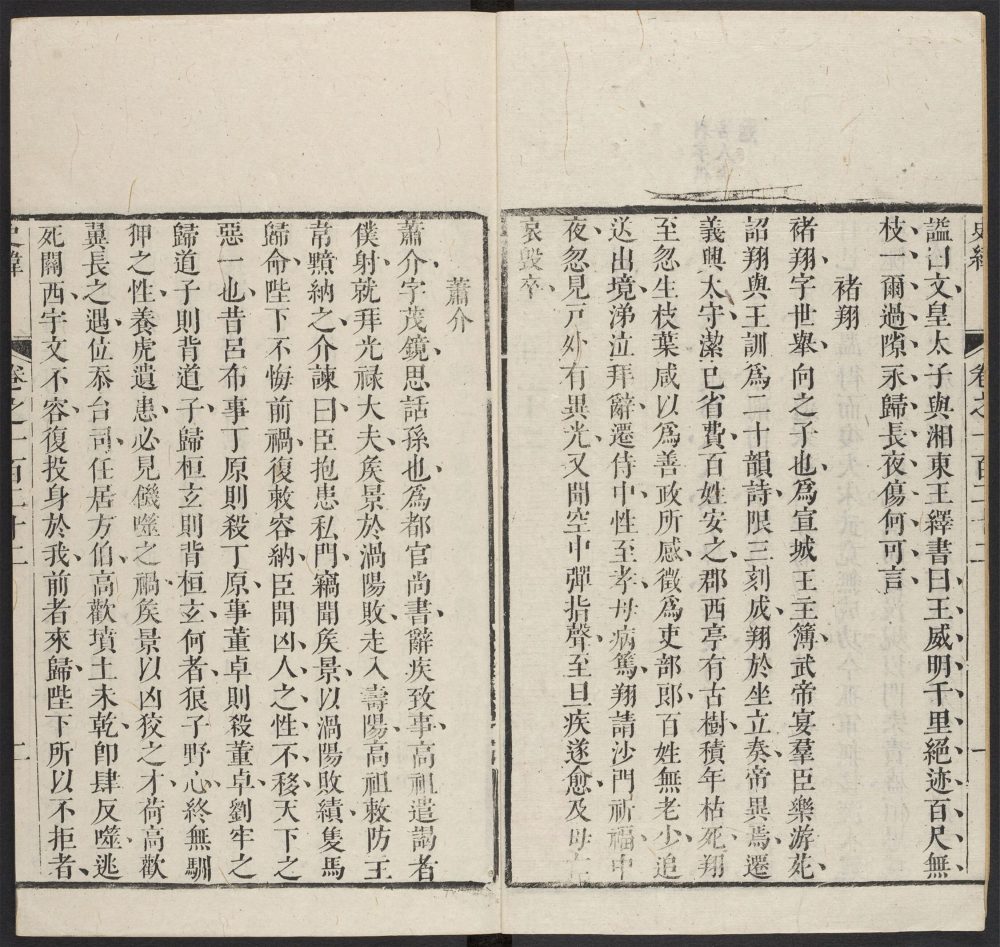 史緯 卷之一百二十二 一
諡曰文皇太子與湘東王繹書曰王威明千里絕迹百尺無
枝一爾過隙永歸長夜傷何可言
褚翔
褚翔字世舉向之子也爲宣城王主簿武帝宴羣臣樂游苑
詔翔與王訓爲二十韻詩限三刻成翔於坐立奏帝異焉遷
義興太守潔已省費百姓安之郡西亭有古樹積年枯死翔
至忽生枝葉咸以爲善政所感徵爲吏部郎百姓無老少追
送出境涕泣拜辭遷侍中性至孝母病篤翔請沙門祈福中
夜忽見戸外有異光又聞空中彈指聲至旦疾遂愈及母亡
哀毀卒
蕭介
蕭介字茂鏡思話孫也爲都官尚書辭疾致事高祖遣謁者
僕射就拜光祿大夫矦景於渦陽敗走入壽陽高祖敕防王
韋黯納之介諫曰臣抱患私門竊聞矦景以渦陽敗績隻馬
歸命陛下不悔前禍復敕容納臣聞凶人之性不移天下之
惡一也昔呂布事丁原則殺丁原事董卓則殺董卓劉牢之
歸道子則背道子歸桓玄則背桓玄何者狼子野心終無馴
狎之性養虎遺患必見饑噬之禍矦景以凶狡之才荷高歡
翼長之遇位忝台司任居方伯高歡墳土未乾卽肆反噬逃
死關西宇文不容復投身於我前者來歸陛下所以不拒者
史緯 卷之一百二十二 二